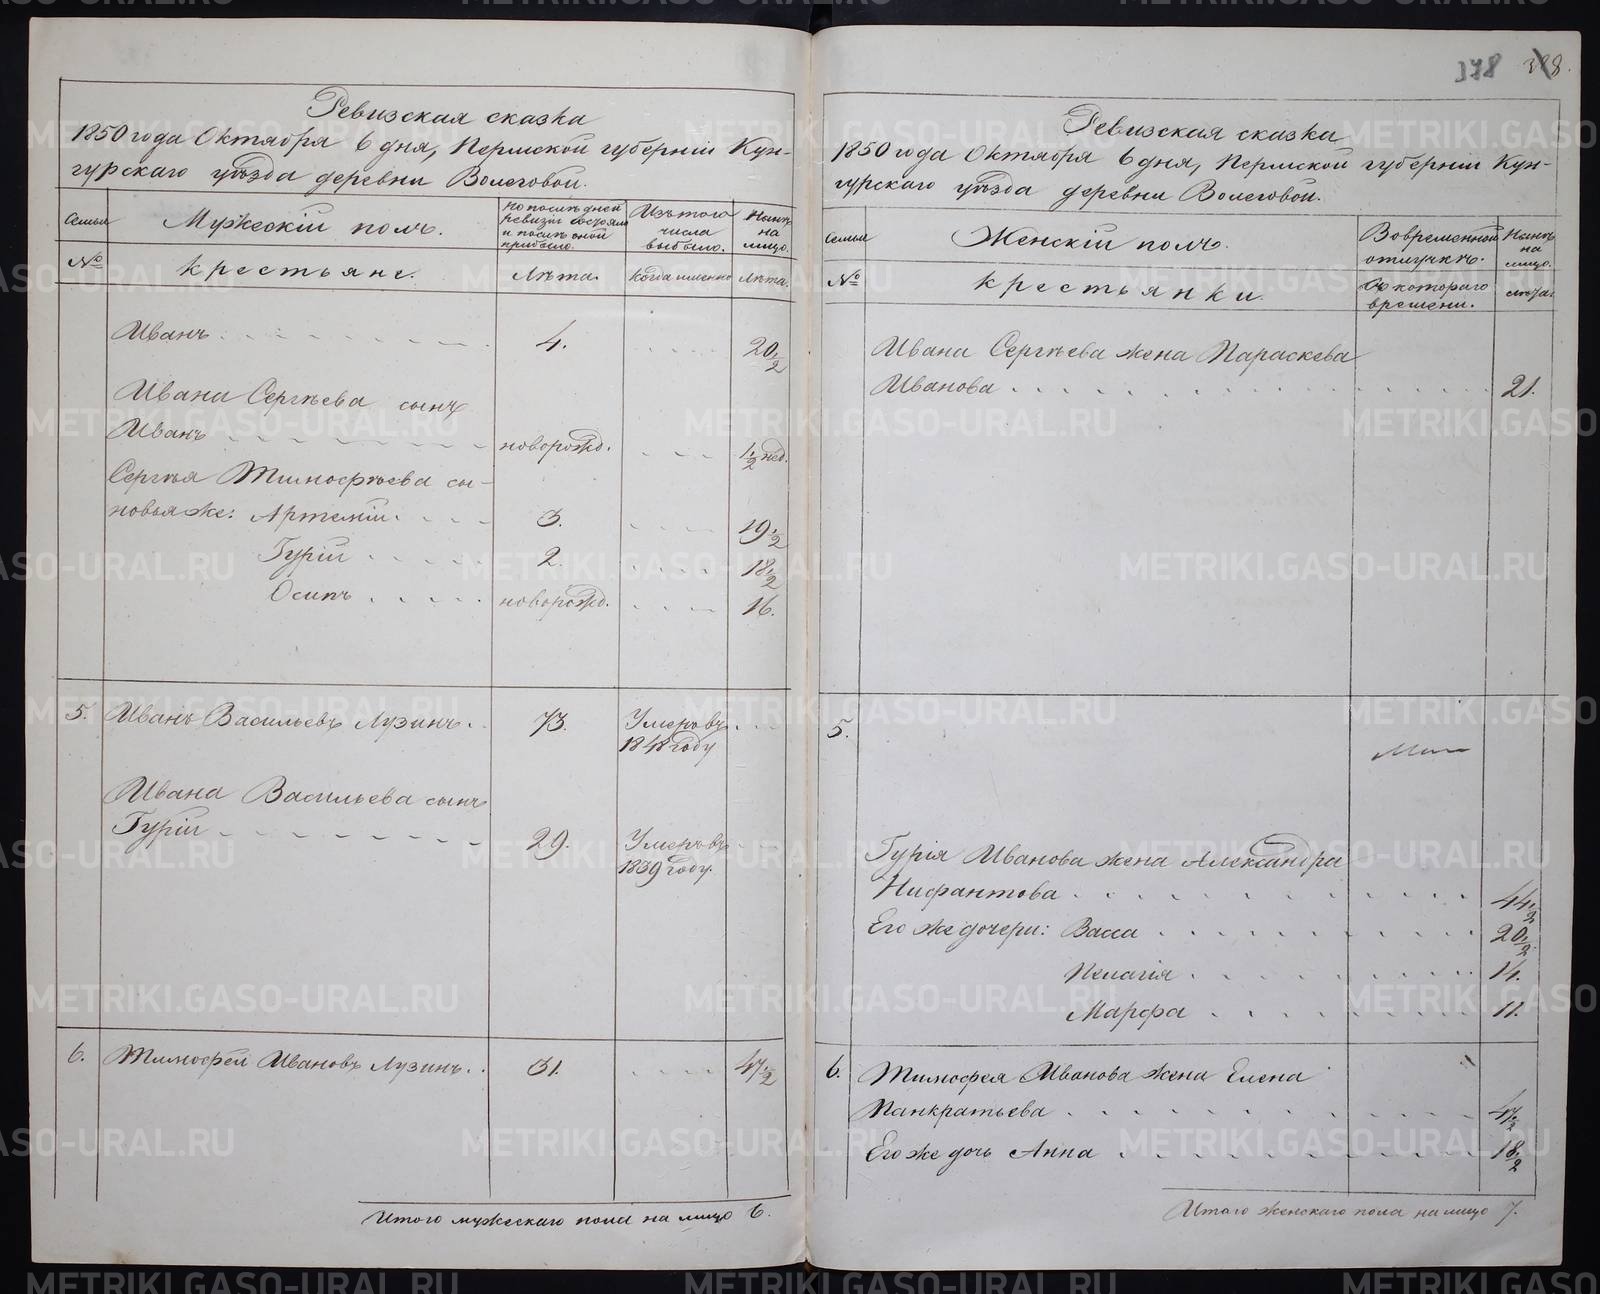 Ревизская сказка
1850 года Октября 6 дня, Пермской губернiи Кун-
гурскаго уѣзда деревни Волеговой.
Семьи
Мужескiй полъ.
По послѣ дней
ревизiи состояло
и послѣ оной
прибыло.
Изъ того
числа
выбыло.
Нынѣ
на
лицо.
№
крестьяне.
Лѣта.
Когда именно
Лѣта.
Иванъ 4. 20 1/2
Ивана Сергѣева сынъ
Иванъ новорожд. 1/2 нед.
Сергѣя Тимофѣева сы-
новья же: Артемiй. 3. 19 1/2
Гурiй 2. 18 1/2
Осипъ новорожд. 16.
5. Иванъ Васильевъ Лузинъ. 73. Умеръ въ
1848 году
Ивана Васильева сынъ
Гурiй 29. Умеръ въ
1839 году.
6. Тимофей Ивановъ Лузинъ. 31. 47 1/2
Итого мужескаго пола на лицо 6.
378 388.
Ревизская сказка
1850 года Октября 6 дня, Пермской губернiи Кун-
гурскаго уѣзда деревни Волеговой.
Семьи
Женскiй полъ.
Во временной
отлучкѣ.
Нынѣ
на
лицо.
№
крестьянки.
Съ котораго
времени.
лѣта.
Ивана Сергѣева жена Параскева
Иванова 21.
5.
Гурiя Иванова жена Александра
Нифантова 44 1/2
Его же дочери: Васса 20 1/2
Пелагiя 14.
Марфа 11.
6. Тимофея Иванова жена Елена
Панкратьева 47 1/2
Его же дочь Анна 18 1/2
Итого женскаго пола на лицо 7.
METRIKI.GASO-URAL.RU